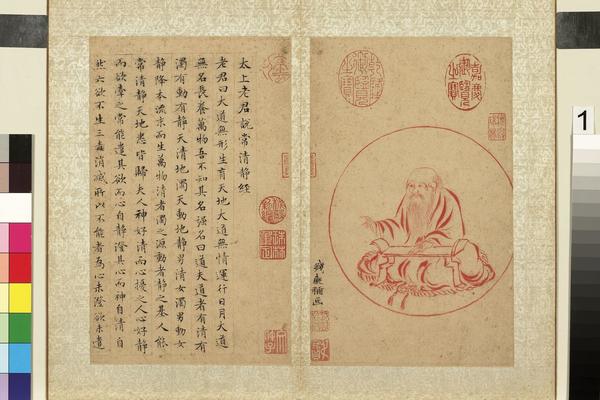 嘉慶御覽之寶
乾隆御覽之寶
太上老君說常清静經
老君曰大道無形生育天地大道無情運行日月大道
無名長養萬物吾不知其名强名曰道夫道者有清有
濁有動有静天清地濁天動地静男清女濁男動女
静降本流末而生萬物清者濁之源動者静之基人能
常清静天地悉皆歸夫人神好清而心擾之人心好静
而欲牽之常能遣其欲而心自静澄其心而神自清自
然六欲不生三毒消滅所以不能者為心未澄欲未遣
1